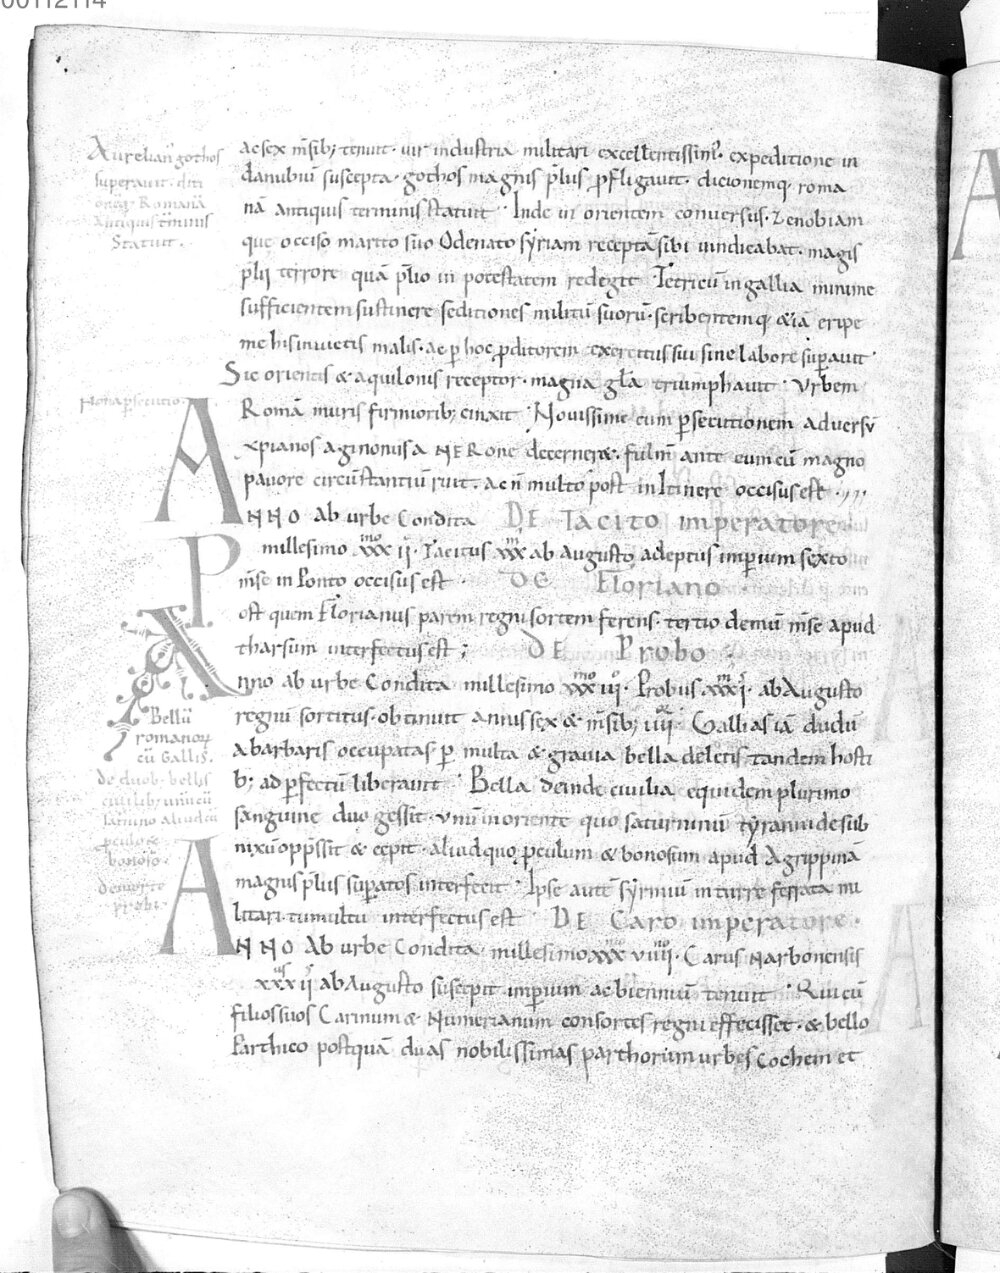 00112114
Aurelian' gothos
superavit. diti
onẽq; Romanã
Antiquis t̃minis
Statuit.
ac sex m̃sib; tenuit. vir industria militari excellentissim'. expeditione in
danubiũ suscepta. gothos magnis p̃liis ꝓfligavit. dicionemq; roma
nã antiquis terminis statuit. Inde in orientem conversus. zenobiam
que occiso marito suo Odenato sẏriam receptã sibi vindicabat. magis
p̃lii terrore quã p̃lio in potestatem redegit. Tetricũ in gallia minime
sufficientem sustinere seditiones militũ suorũ. scribentemq; &iã eripe
me his invicte malis. ac p̱ hoc ꝓditorem exercitus sui sine labore sup̱avit.
Sic orientis & aquilonis receptor. magna gl̃a triumphavit. Urbem
Nona p̱secutio.
Romã muris firmiorib; cinxit. Novissime cum p̱secutionem adversũ
xp̃ianos agi nonus a NERone decerner&. fulm̃ ante eum cũ magno
pavore circũstantiũ ruit. ac ñ multo post in Itinere occisus est.
ANNO Ab urbe Condita DE Tacito imperatore
millesimo xxxii. Tacitus xxx ab Augusto adeptus imp̱ium sexto
m̃se in Ponto occisus est DE Floriano
Post quem Florianus parem regni sortem ferens. tertio demũ m̃se apud
tharsum interfectus est; DE Probo.
Anno ab urbe Condita millesimo xxxiii. Probus xxxi. ab Augusto
regnũ sortitus. obtinuit annis sex & m̃sib; iiii. Gallias iã dudũ
Bellũ
romanoꝝ
cũ Gallis.
a barbaris occupatas p̱ multa & gravia bella deletis tandem hosti
b; ad p̱fectũ liberavit. Bella deinde civilia equidem plurimo
de duob; bellis
civilib; unũ cũ
saturnino aliud cũ
ꝓculo &
bonoso.
sanguine duo gessit. unũ in oriente quo saturninũ tẏrannide sub
nixũ opp̃ssit & cepit. aliud quo ꝓculum & bonosum apud Agrippinã
de morte
probi.
magnis p̃liis sup̱atos interfecit. Ipse autẽ sẏrmiũ in turre ferrata mi
litari tumultu interfectus est DE Caro imperatore.
ANNO Ab urbe Condita. millesimo xxxviiii. Carus Narbonensis
xxxii ab Augusto suscepit imp̱ium ac biennũ tenuit. Qui cũ
filios suos Carinum & Numerianum consortes regni effecisset. & bello
Parthico postquã duas nobilissimas parthorum urbes Cochem et